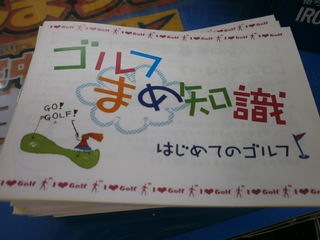 I ❤ Golf I ❤ Golf I ❤ Golf I ❤ Golf
ゴルフ
まめ知識
GO!
GOLF!
はじめてのゴルフ
I ❤ Golf I ❤ Golf I ❤ Golf I ❤ Golf I ❤ Golf